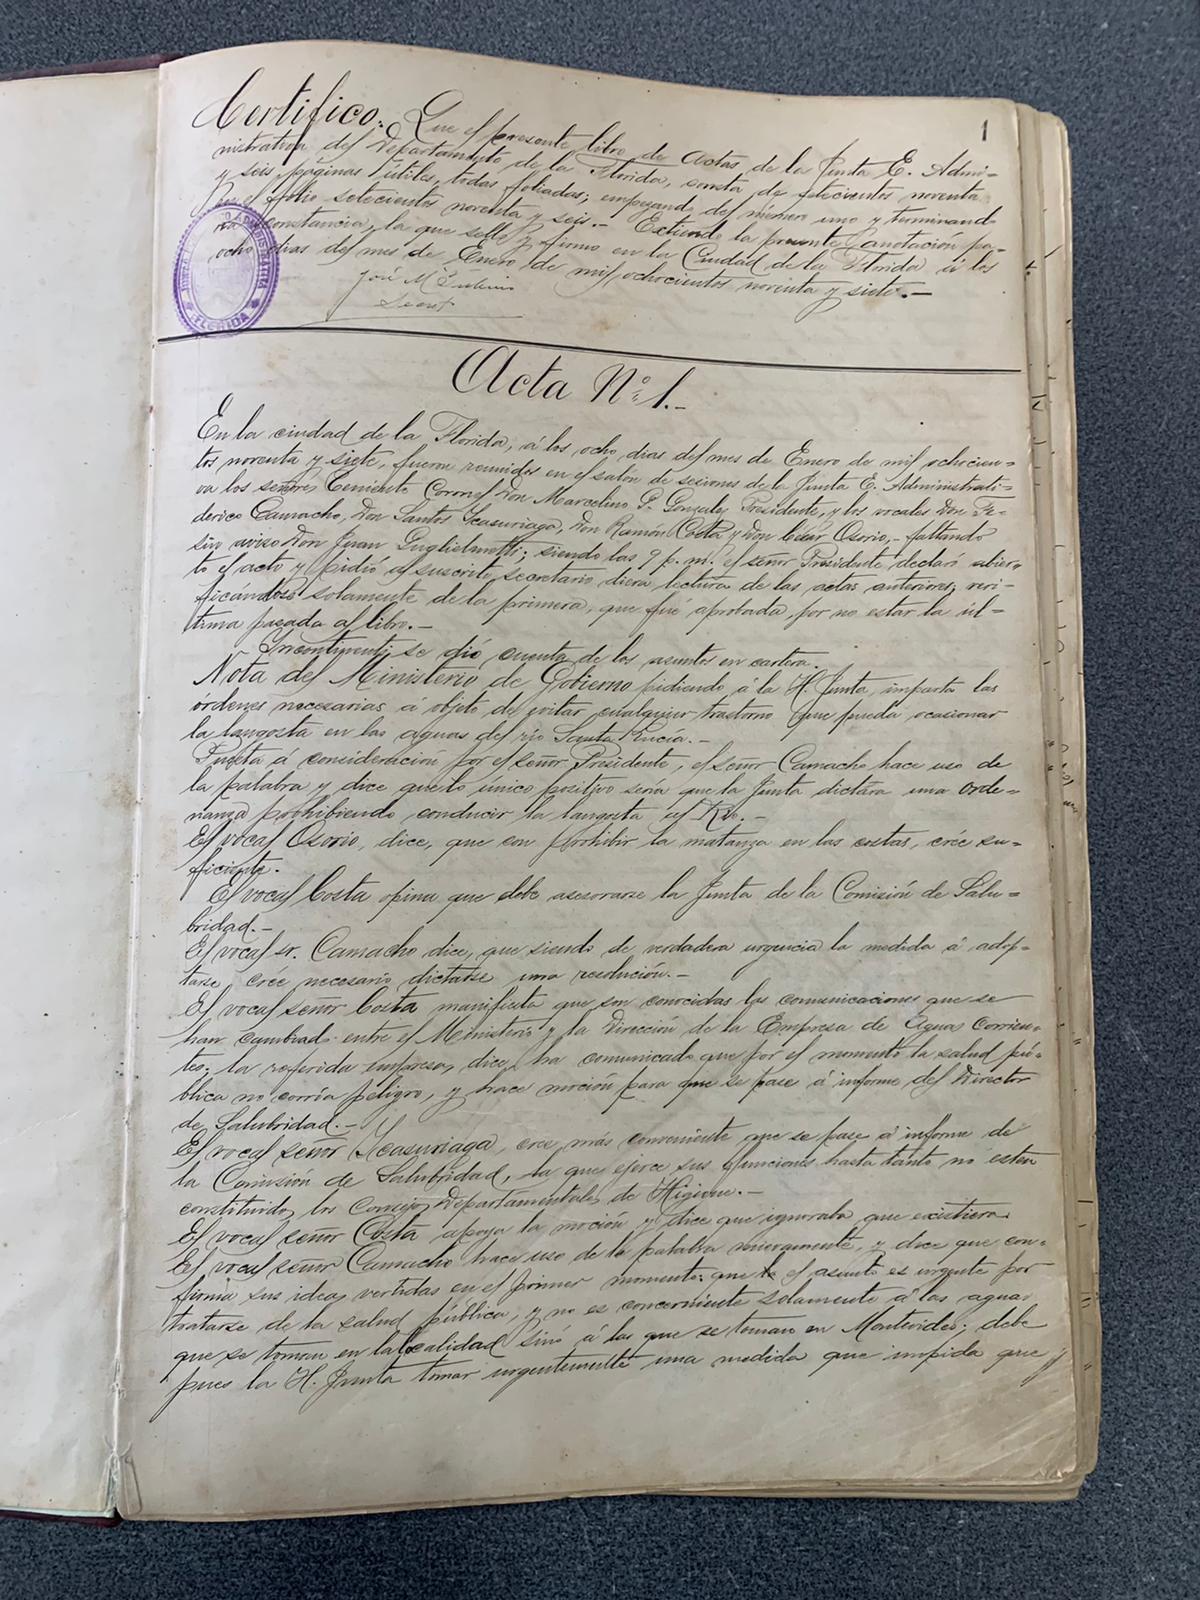 1
Certifico: Que el presente libro de Actas de la Junta E. Admi-
nistrativa del Departamento de la Florida, consta de setecientos noventa
y seis páginas útiles, todas foliadas; empezando del número uno y terminando
en el folio setecientos noventa y seis.- Extiendo la presente anotación pa-
ra constancia, la que sello y firmo en la Ciudad de la Florida á los
ocho dias del mes de Enero de mil ochocientos noventa y siete.-
José M.
Secret
FLORIDA
Acta Nº 1.-
En la ciudad de la Florida, á los ocho dias del mes de Enero de mil ochocien=
tos noventa y siete, fueron reunidos en el salón de sesiones de la Junta E. Administrati=
va los señores Teniente Coronel Don Marcelino P. Gonzalez Presidente, y los vocales Don Fe=
derico Camacho, Don Santos Icasuriaga, Don Ramón Costa y Don César Osorio,- faltando
sin aviso Don Juan Guglielmetti; siendo las 9 p.m. el señor Presidente declaró abier=
to el acto y pidió al suscrito secretario diera lectura de las actas anteriores, veri=
ficándose solamente de la primera, que fué aprobada, por no estar la úl=
tima pasada al libro.-
Incontinenti se dió cuenta de los asuntos en cartera.
Nota del Ministerio de Gobierno pidiendo á la H. Junta, imparta las
órdenes necesarias á objeto de evitar cualquier trastorno que pueda ocasionar
la langosta en las aguas del rio Santa Lucía.-
Puesta á consideración por el señor Presidente, el señor Camacho hace uso de
la palabra y dice que lo único positivo sería que la Junta dictára una orde=
nanza prohibiendo conducir la langosta al Rio.-
El vocal Osorio, dice, que con prohibir la matanza en las costas, crée su=
ficiente.
El vocal Costa opina que debe asesorarse la Junta de la Comisión de Salu=
bridad.-
El vocal sr. Camacho dice, que siendo de verdadera urgencia la medida á adop=
tarse crée necesario dictarse una resolución.-
El vocal señor Costa manifiesta que son conocidas las comunicaciones que se
han cambiado entre el Ministerio y la Dirección de la Empresa de Aguas Corrien=
tes; la referida empresa, dice, ha comunicado que por el momento la salud pú=
blica no corría peligro, y hace moción para que se pase á informe del Director
de Salubridad.-
El vocal señor Icasuriaga, cree más conveniente que se pase á informe de
la Comisión de Salubridad, la que ejerce sus funciones hasta tanto no esten
constituidos los Consejos Departamentales de Higiene.-
El vocal señor Costa apoya la moción y dice que ignoraba que existiera.
El vocal señor Camacho hace uso de la palabra nuevamente, y dice que con-
firma sus ideas vertidas en el primer momento: que el asunto es urgente por
tratarse de la salud pública, y no es concerniente solamente á las aguas
que se toman en la localidad sinó á las que se toman en Montevideo; debe
pues la H. Junta tomar urgentemente una medida que impida que